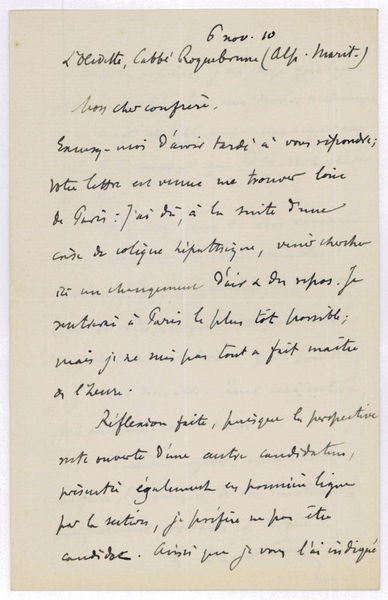 6 nov. 10
L'Olivette, Cabbé Roquebrune (Alp. Marit.)
Mon cher confrère.
Excusez-moi d'avoir tardé à vous répondre;
votre lettre est venue me trouver loin
de Paris : J'ai dû, à la suite d'une
crise de colique hépathique, venir chercher
ici un changement d'air & du repos. Je
rentrerai à Paris le plus tôt possible;
mais je ne suis pas tout à fait maître
de l'heure.
Réflexion faite, puisque la perspective
reste ouverte d'une autre candidature,
présentée également en première ligne
par la section, je préfère ne pas être
candidat. Ainsi que je vous l'ai indiqué